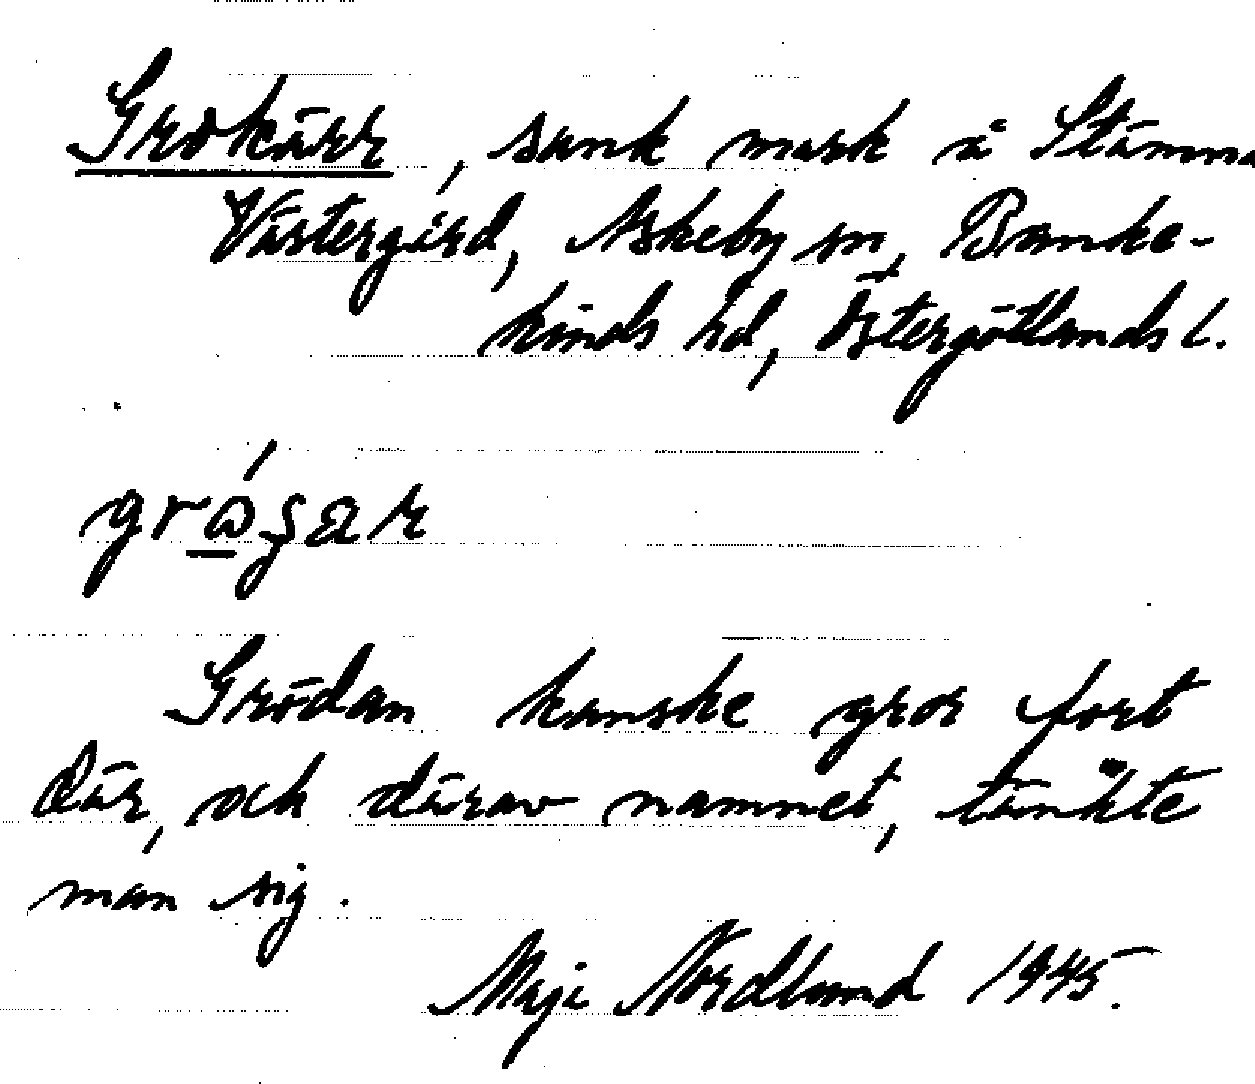 Grokärr, sank mark å Stämma
Västergård, Askeby sn, Banke-
kinds hd, Östergötlands l.
Grödan kanske gror fort
där, och därav namnet, tänkte
man sig.
Maje Nordlund 1945.